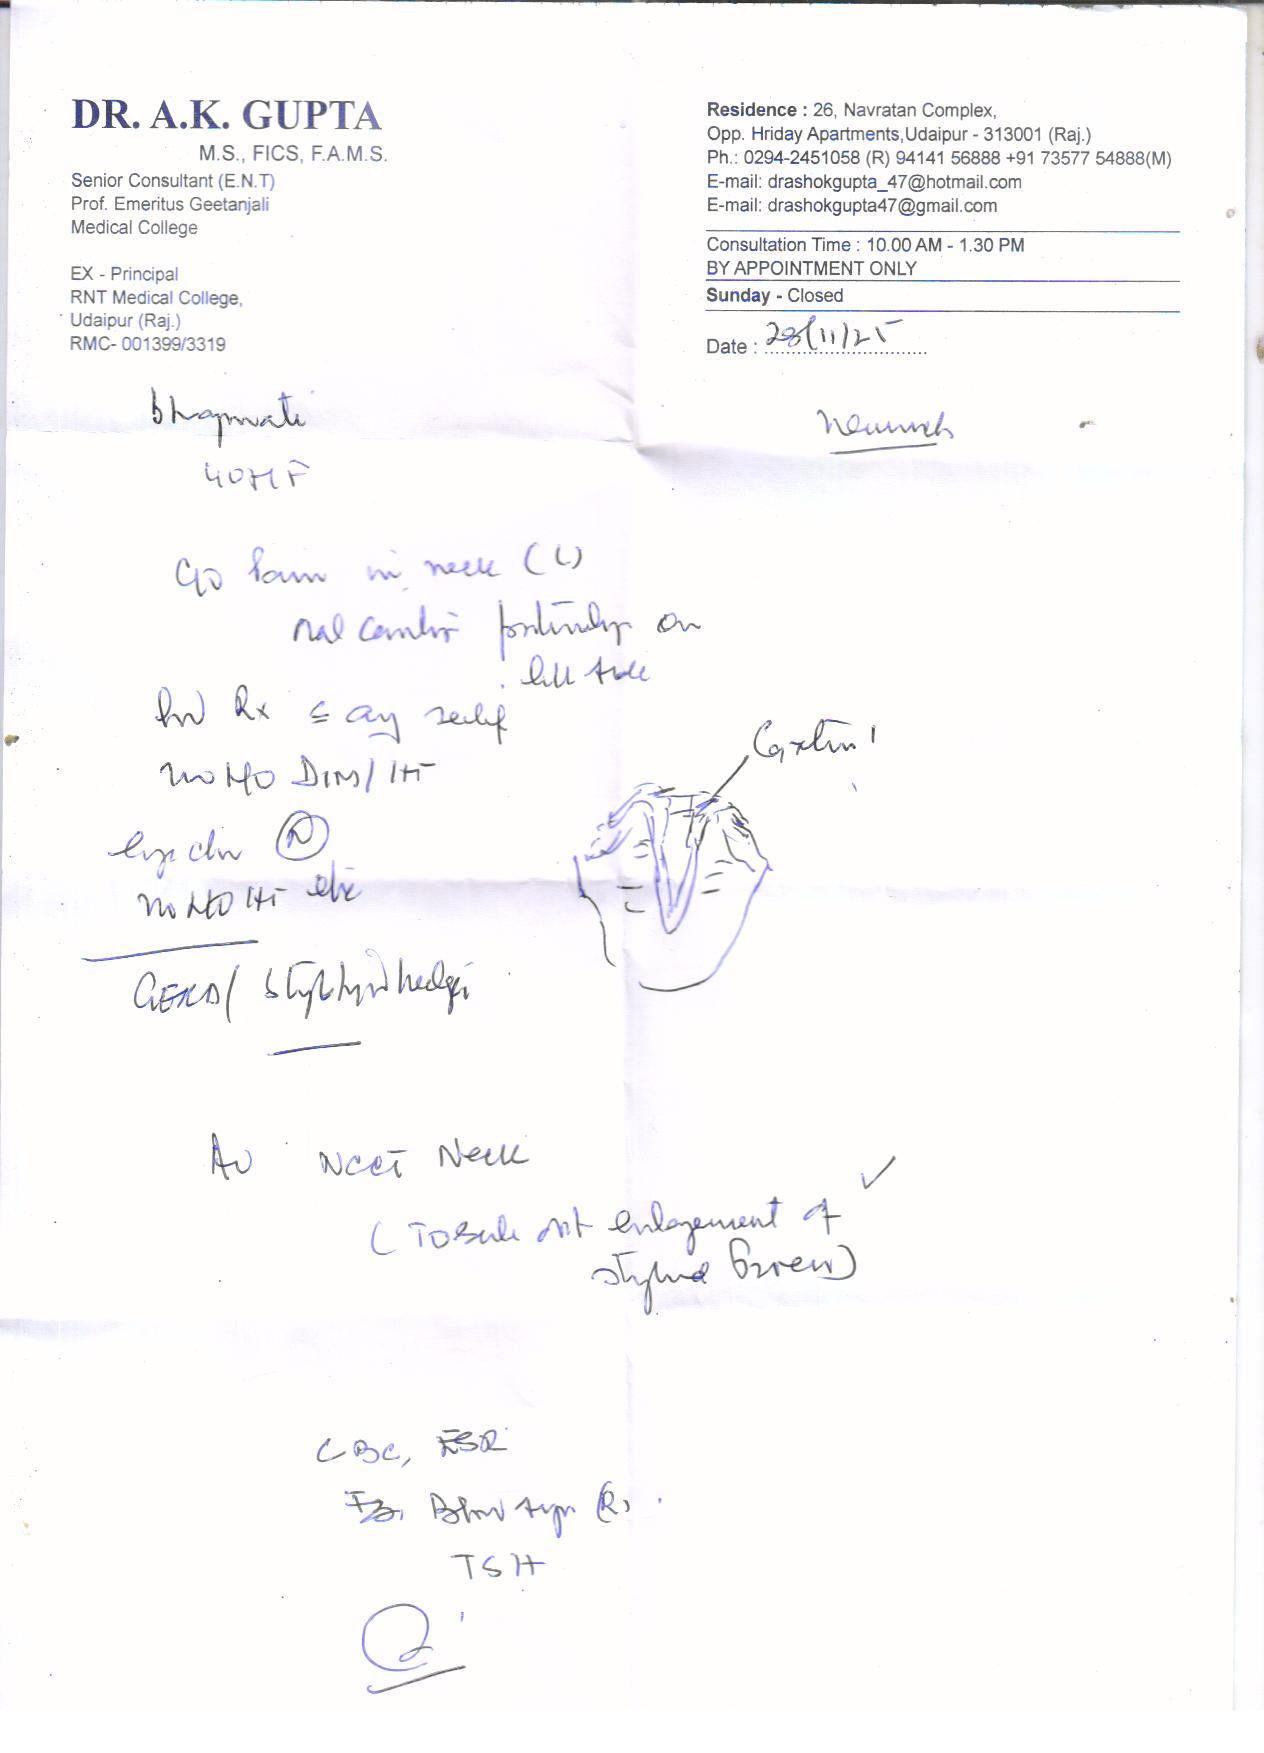 DR. A.K. GUPTA
M.S., FICS, F.A.M.S.
Senior Consultant (E.N.T)
Prof. Emeritus Geetanjali
Medical College
EX - Principal
RNT Medical College,
Udaipur (Raj.)
RMC- 001399/3319
Residence : 26, Navratan Complex,
Opp. Hriday Apartments,Udaipur - 313001 (Raj.)
Ph.: 0294-2451058 (R) 94141 56888 +91 73577 54888(M)
E-mail: drashokgupta_47@hotmail.com
E-mail: drashokgupta47@gmail.com
Consultation Time : 10.00 AM - 1.30 PM
BY APPOINTMENT ONLY
Sunday - Closed
Date : 28/11/25
Bhagwati
Neemuch
40 F
C/o Pain in neck (L)
on
Rx any relief
no H/O DM/HT
N
no H/O HT etc
GERD/
Adv NCCT Neck
enlargement of
styloid
CBC, ESR
Blood sugar (R)
TSH